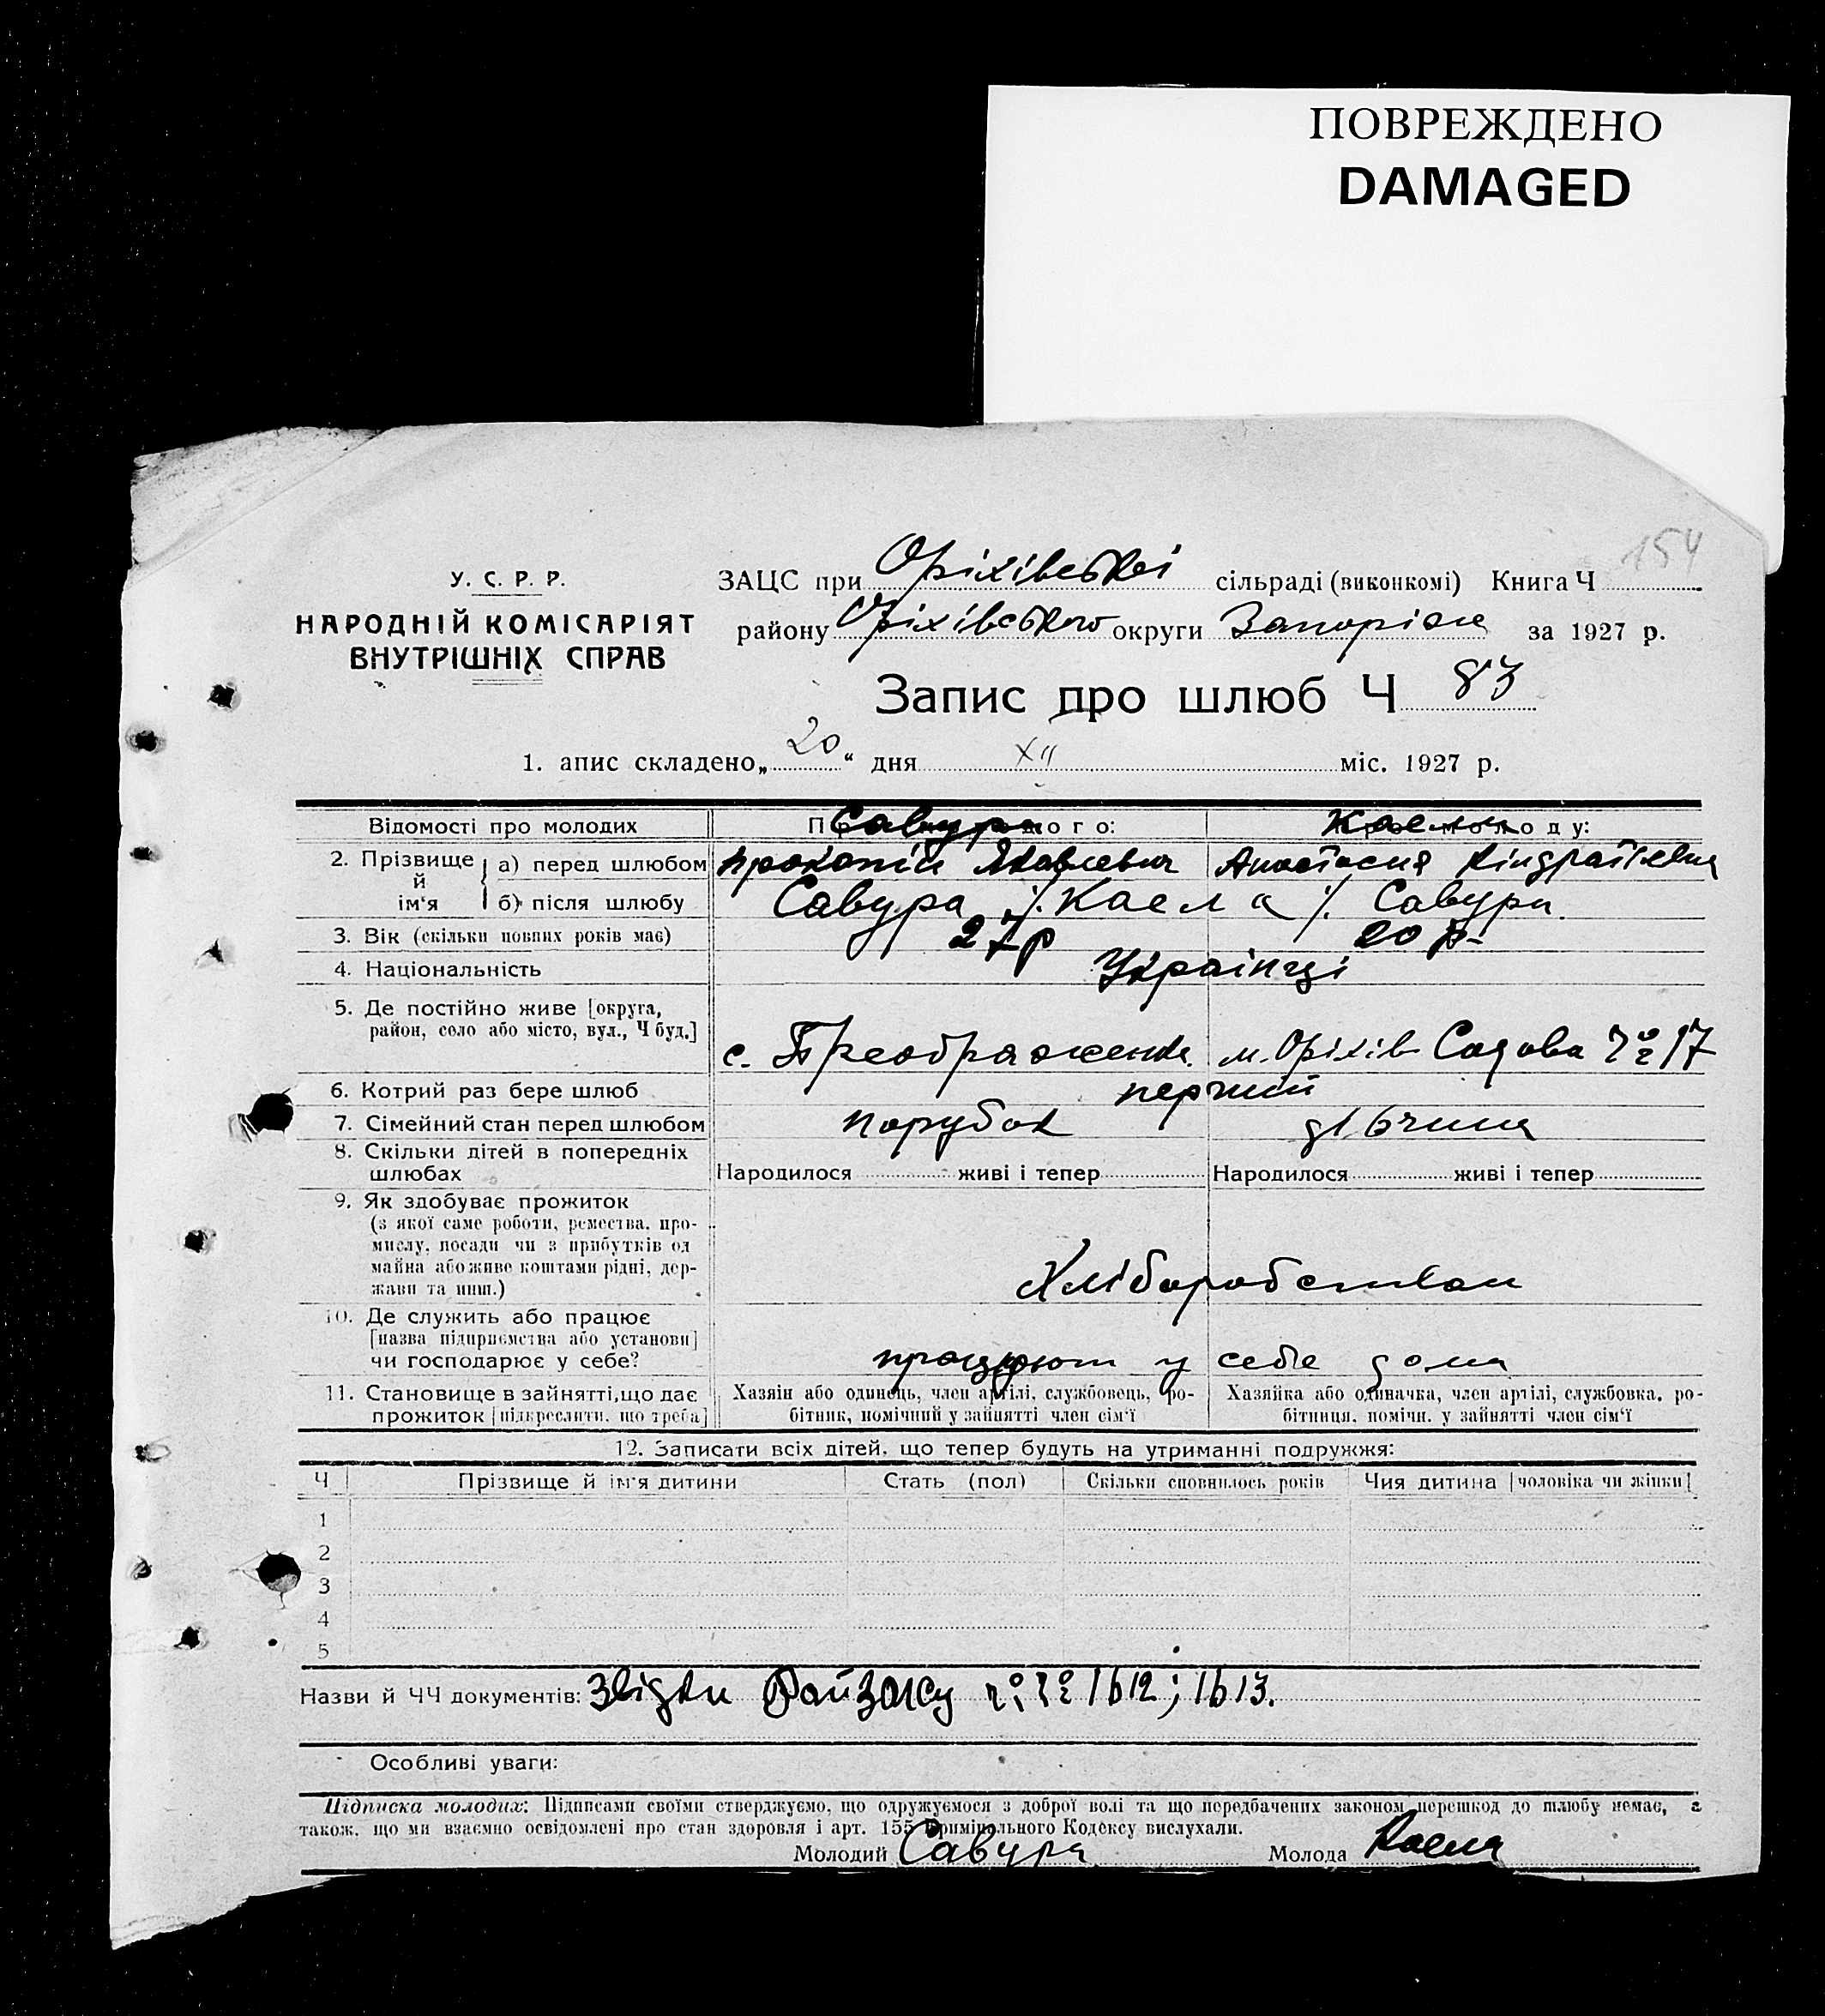 ПОВРЕЖДЕНО
DAMAGED
154
У. С. Р. Р.
НАРОДНІЙ КОМІСАРІЯТ
ВНУТРІШНІХ СПРАВ
ЗАЦС при Оріхівській сільраді (виконкомі) Книга Ч
району Оріхівського округи Запоріж за 1927 р.
Запис про шлюб Ч 83
1. апис складено „ 20 “ дня XII міс. 1927 р.
Відомості про молодих
Савура
Каела
2. Прізвище й ім‘я
а) перед шлюбом Прокопій Яковлевич Анастасия Кіндратівна
б) після шлюбу Савура /. Каела /. Савура.
3. Вік (скільки повних років має) 27 р 20 р.
4. Національність Українці
5. Де постійно живе [округа,
район, село або місто, вул., Ч буд.] с. Преображенка. м. Оріхів Садова № 17
6. Котрий раз бере шлюб перший
7. Сімейний стан перед шлюбом парубок дівчина
8. Скільки дітей в попередніх
шлюбах Народилося живі і тепер Народилося живі і тепер
9. Як здобуває прожиток
(з якої саме роботи, ремества, про-
мислу, посади чи з прибутків од
майна або живе коштами рідні, дер-
жави та инш.) Хліборобством
10. Де служить або працює
[назва підприємства або установи]
чи господарює у себе? працюют у себе дома
11. Становище в зайнятті, що дає
прожиток [підкреслити, що треба]
Хазяін або одинець, член артілі, службовець, ро-
бітник, помічний у зайнятті член сім‘ї
Хазяйка або одиначка, член артілі, службовка, ро-
бітниця, помічн. у зайнятті член сім‘ї
12. Записати всіх дітей, що тепер будуть на утриманні подружжя:
Ч Прізвище й ім‘я дитини Стать (пол) Скільки сповнилось років Чия дитина [чоловіка чи жінки]
1
2
3
4
5
Назви й ЧЧ документів: Звідки 1612; 1613.
Особливі уваги:
Підписка молодих: Підписами своїми стверджуємо, що одружуємося з доброї волі та що передбачених законом перешкод до шлюбу немає, а
також, що ми взаємно освідомлені про стан здоровля і арт. 155 Кримінального Кодексу вислухали.
Молодий Савура Молода Каела